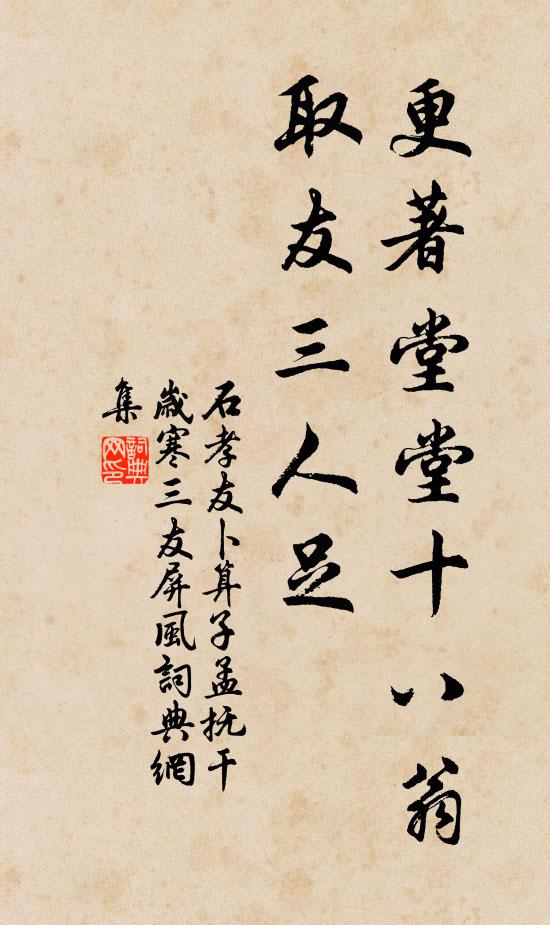 更著堂堂十八翁
取友三人足
石孝友卜算子孟抚干
歲寒三友屏風詞典網
集
詞典網印